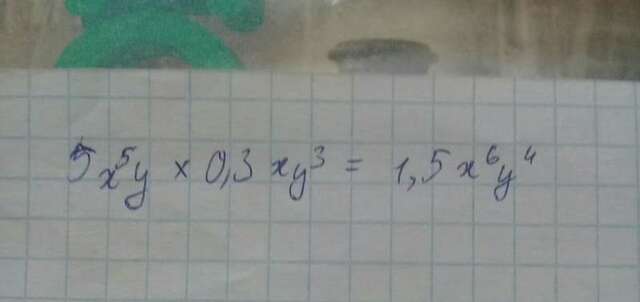 5x⁵y × 0,3xy³ = 1,5x⁶y⁴